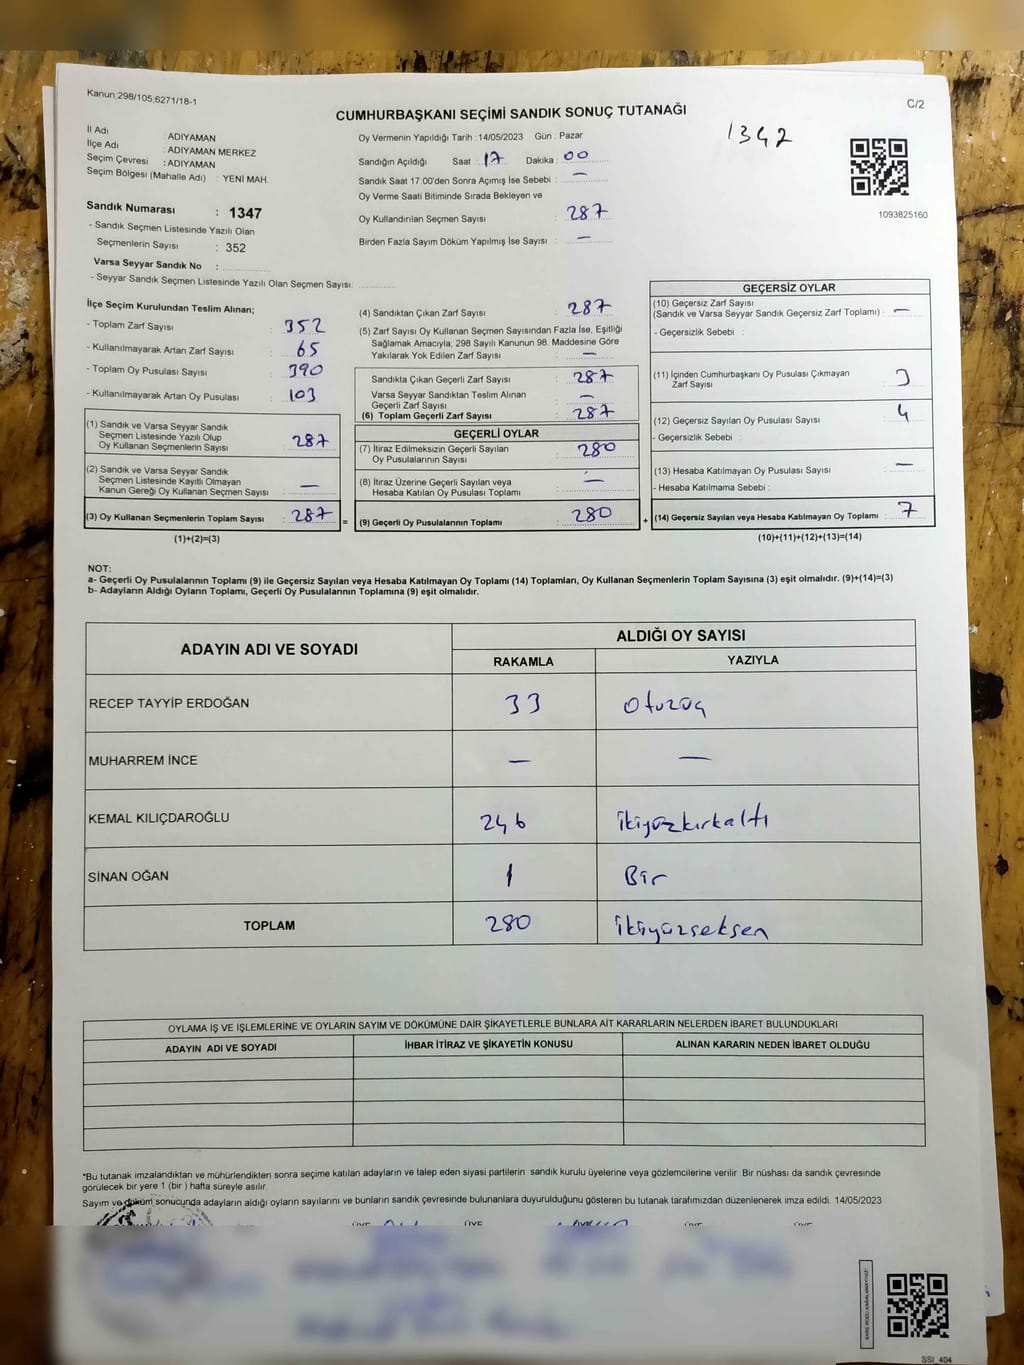 Kanun;298/105;6271/18-1
C/2
CUMHURBAŞKANI SEÇİMİ SANDIK SONUÇ TUTANAĞI
1342
İl Adı : ADIYAMAN
İlçe Adı : ADIYAMAN MERKEZ
Seçim Çevresi : ADIYAMAN
Seçim Bölgesi (Mahalle Adı) : YENİ MAH.
Sandık Numarası : 1347
- Sandık Seçmen Listesinde Yazılı Olan
Seçmenlerin Sayısı : 352
Varsa Seyyar Sandık No : ................
- Seyyar Sandık Seçmen Listesinde Yazılı Olan Seçmen Sayısı: ............
Oy Vermenin Yapıldığı Tarih : 14/05/2023 Gün : Pazar
Sandığın Açıldığı Saat : 17 Dakika : 00
Sandık Saat 17:00'den Sonra Açımış İse Sebebi : —
Oy Verme Saati Bitiminde Sırada Bekleyen ve
Oy Kullandırılan Seçmen Sayısı : 287
Birden Fazla Sayım Döküm Yapılmış İse Sayısı : —
1093825160
İlçe Seçim Kurulundan Teslim Alınan;
- Toplam Zarf Sayısı : 352
- Kullanılmayarak Artan Zarf Sayısı : 65
- Toplam Oy Pusulası Sayısı : 390
- Kullanılmayarak Artan Oy Pusulası : 103
(1) Sandık ve Varsa Seyyar Sandık
Seçmen Listesinde Yazılı Olup
Oy Kullanan Seçmenlerin Sayısı : 287
(2) Sandık ve Varsa Seyyar Sandık
Seçmen Listesinde Kayıtlı Olmayan
Kanun Gereği Oy Kullanan Seçmen Sayısı : —
(3) Oy Kullanan Seçmenlerin Toplam Sayısı : 287
(1)+(2)=(3)
=
(4) Sandıktan Çıkan Zarf Sayısı : 287
(5) Zarf Sayısı Oy Kullanan Seçmen Sayısından Fazla İse, Eşitliği
Sağlamak Amacıyla; 298 Sayılı Kanunun 98. Maddesine Göre
Yakılarak Yok Edilen Zarf Sayısı : —
Sandıkta Çıkan Geçerli Zarf Sayısı : 287
Varsa Seyyar Sandıktan Teslim Alınan
Geçerli Zarf Sayısı : —
(6) Toplam Geçerli Zarf Sayısı : 287
GEÇERLİ OYLAR
(7) İtiraz Edilmeksizin Geçerli Sayılan
Oy Pusulalarının Sayısı : 280
(8) İtiraz Üzerine Geçerli Sayılan veya
Hesaba Katılan Oy Pusulası Toplamı : —
(9) Geçerli Oy Pusulalarının Toplamı : 280
+
GEÇERSİZ OYLAR
(10) Geçersiz Zarf Sayısı
(Sandık ve Varsa Seyyar Sandık Geçersiz Zarf Toplamı) : —
- Geçersizlik Sebebi :
(11) İçinden Cumhurbaşkanı Oy Pusulası Çıkmayan
Zarf Sayısı : 3
(12) Geçersiz Sayılan Oy Pusulası Sayısı : 4
- Geçersizlik Sebebi :
(13) Hesaba Katılmayan Oy Pusulası Sayısı : —
- Hesaba Katılmama Sebebi :
(14) Geçersiz Sayılan veya Hesaba Katılmayan Oy Toplamı : 7
(10)+(11)+(12)+(13)=(14)
NOT:
a- Geçerli Oy Pusulalarının Toplamı (9) ile Geçersiz Sayılan veya Hesaba Katılmayan Oy Toplamı (14) Toplamları, Oy Kullanan Seçmenlerin Toplam Sayısına (3) eşit olmalıdır. (9)+(14)=(3)
b- Adayların Aldığı Oyların Toplamı, Geçerli Oy Pusulalarının Toplamına (9) eşit olmalıdır.
ADAYIN ADI VE SOYADI ALDIĞI OY SAYISI
RAKAMLA YAZIYLA
RECEP TAYYİP ERDOĞAN 33 Otuzüç
MUHARREM İNCE — —
KEMAL KILIÇDAROĞLU 246 İkiyüzkırkaltı
SİNAN OĞAN 1 Bir
TOPLAM 280 İkiyüzseksen
OYLAMA İŞ VE İŞLEMLERİNE VE OYLARIN SAYIM VE DÖKÜMÜNE DAİR ŞİKAYETLERLE BUNLARA AİT KARARLARIN NELERDEN İBARET BULUNDUKLARI
ADAYIN ADI VE SOYADI İHBAR İTİRAZ VE ŞİKAYETİN KONUSU ALINAN KARARIN NEDEN İBARET OLDUĞU
*Bu tutanak imzalandıktan ve mühürlendikten sonra seçime katılan adayların ve talep eden siyasi partilerin sandık kurulu üyelerine veya gözlemcilerine verilir. Bir nüshası da sandık çevresinde
görülecek bir yere 1 (bir ) hafta süreyle asılır.
Sayım ve döküm sonucunda adayların aldığı oyların sayılarını ve bunların sandık çevresinde bulunanlara duyurulduğunu gösteren bu tutanak tarafımızdan düzenlenerek imza edildi. 14/05/2023
SSI_404